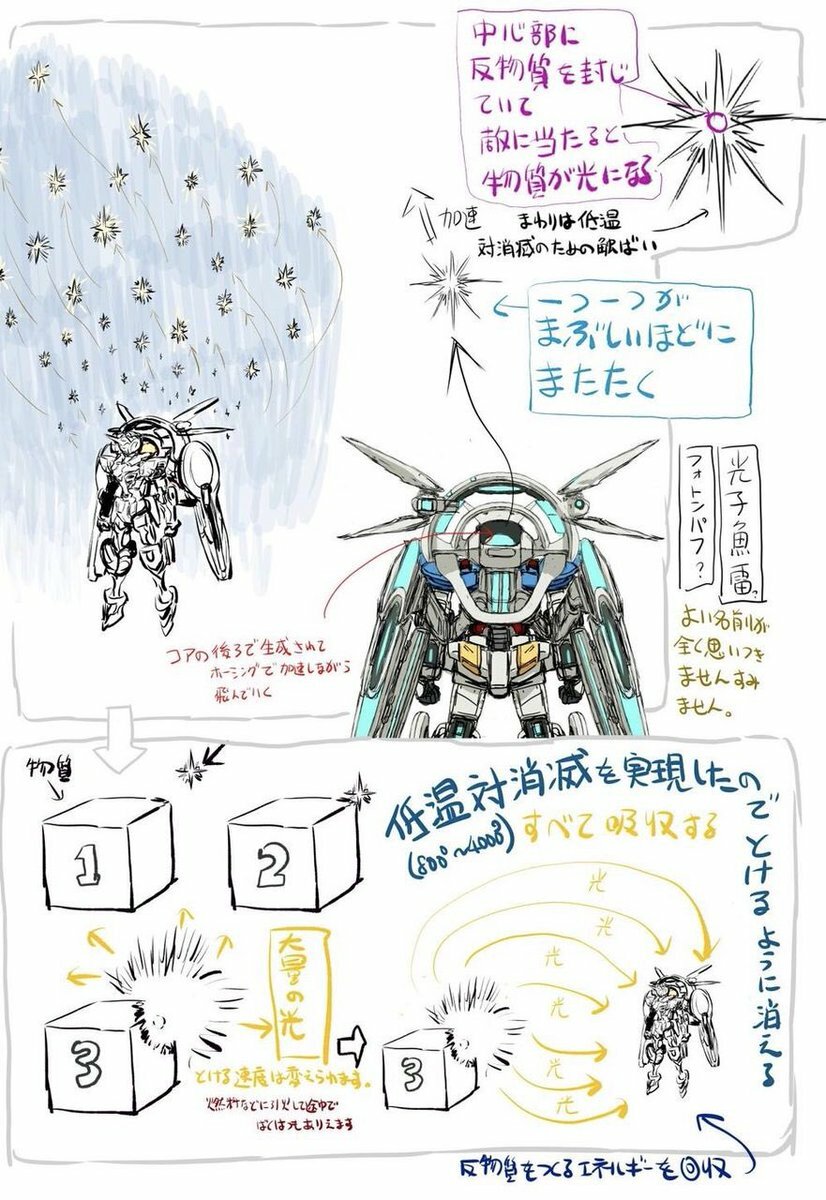 中心部に
反物質を封じ
ていて
敵に当たると
物質が光になる
加速
まわりは低温
対消滅のための
一つ一つが
まぶしいほどに
またたく
光子魚雷?
フォトンパフ?
よい名前が
全く思いつき
ませんすみ
ません。
コアの後ろで生成されて
ホーミングで加速しながら
飛んでいく
物質
1
2
低温対消滅を実現したので
とけるように消える
(800°~4000°)
すべて吸収する
光
光
光
光
光
光
光
3
大量の光
3
とける速度は変えられます。
燃料などに引火して途中で
ばくはつもありえます
反物質をつくるエネルギーを回収